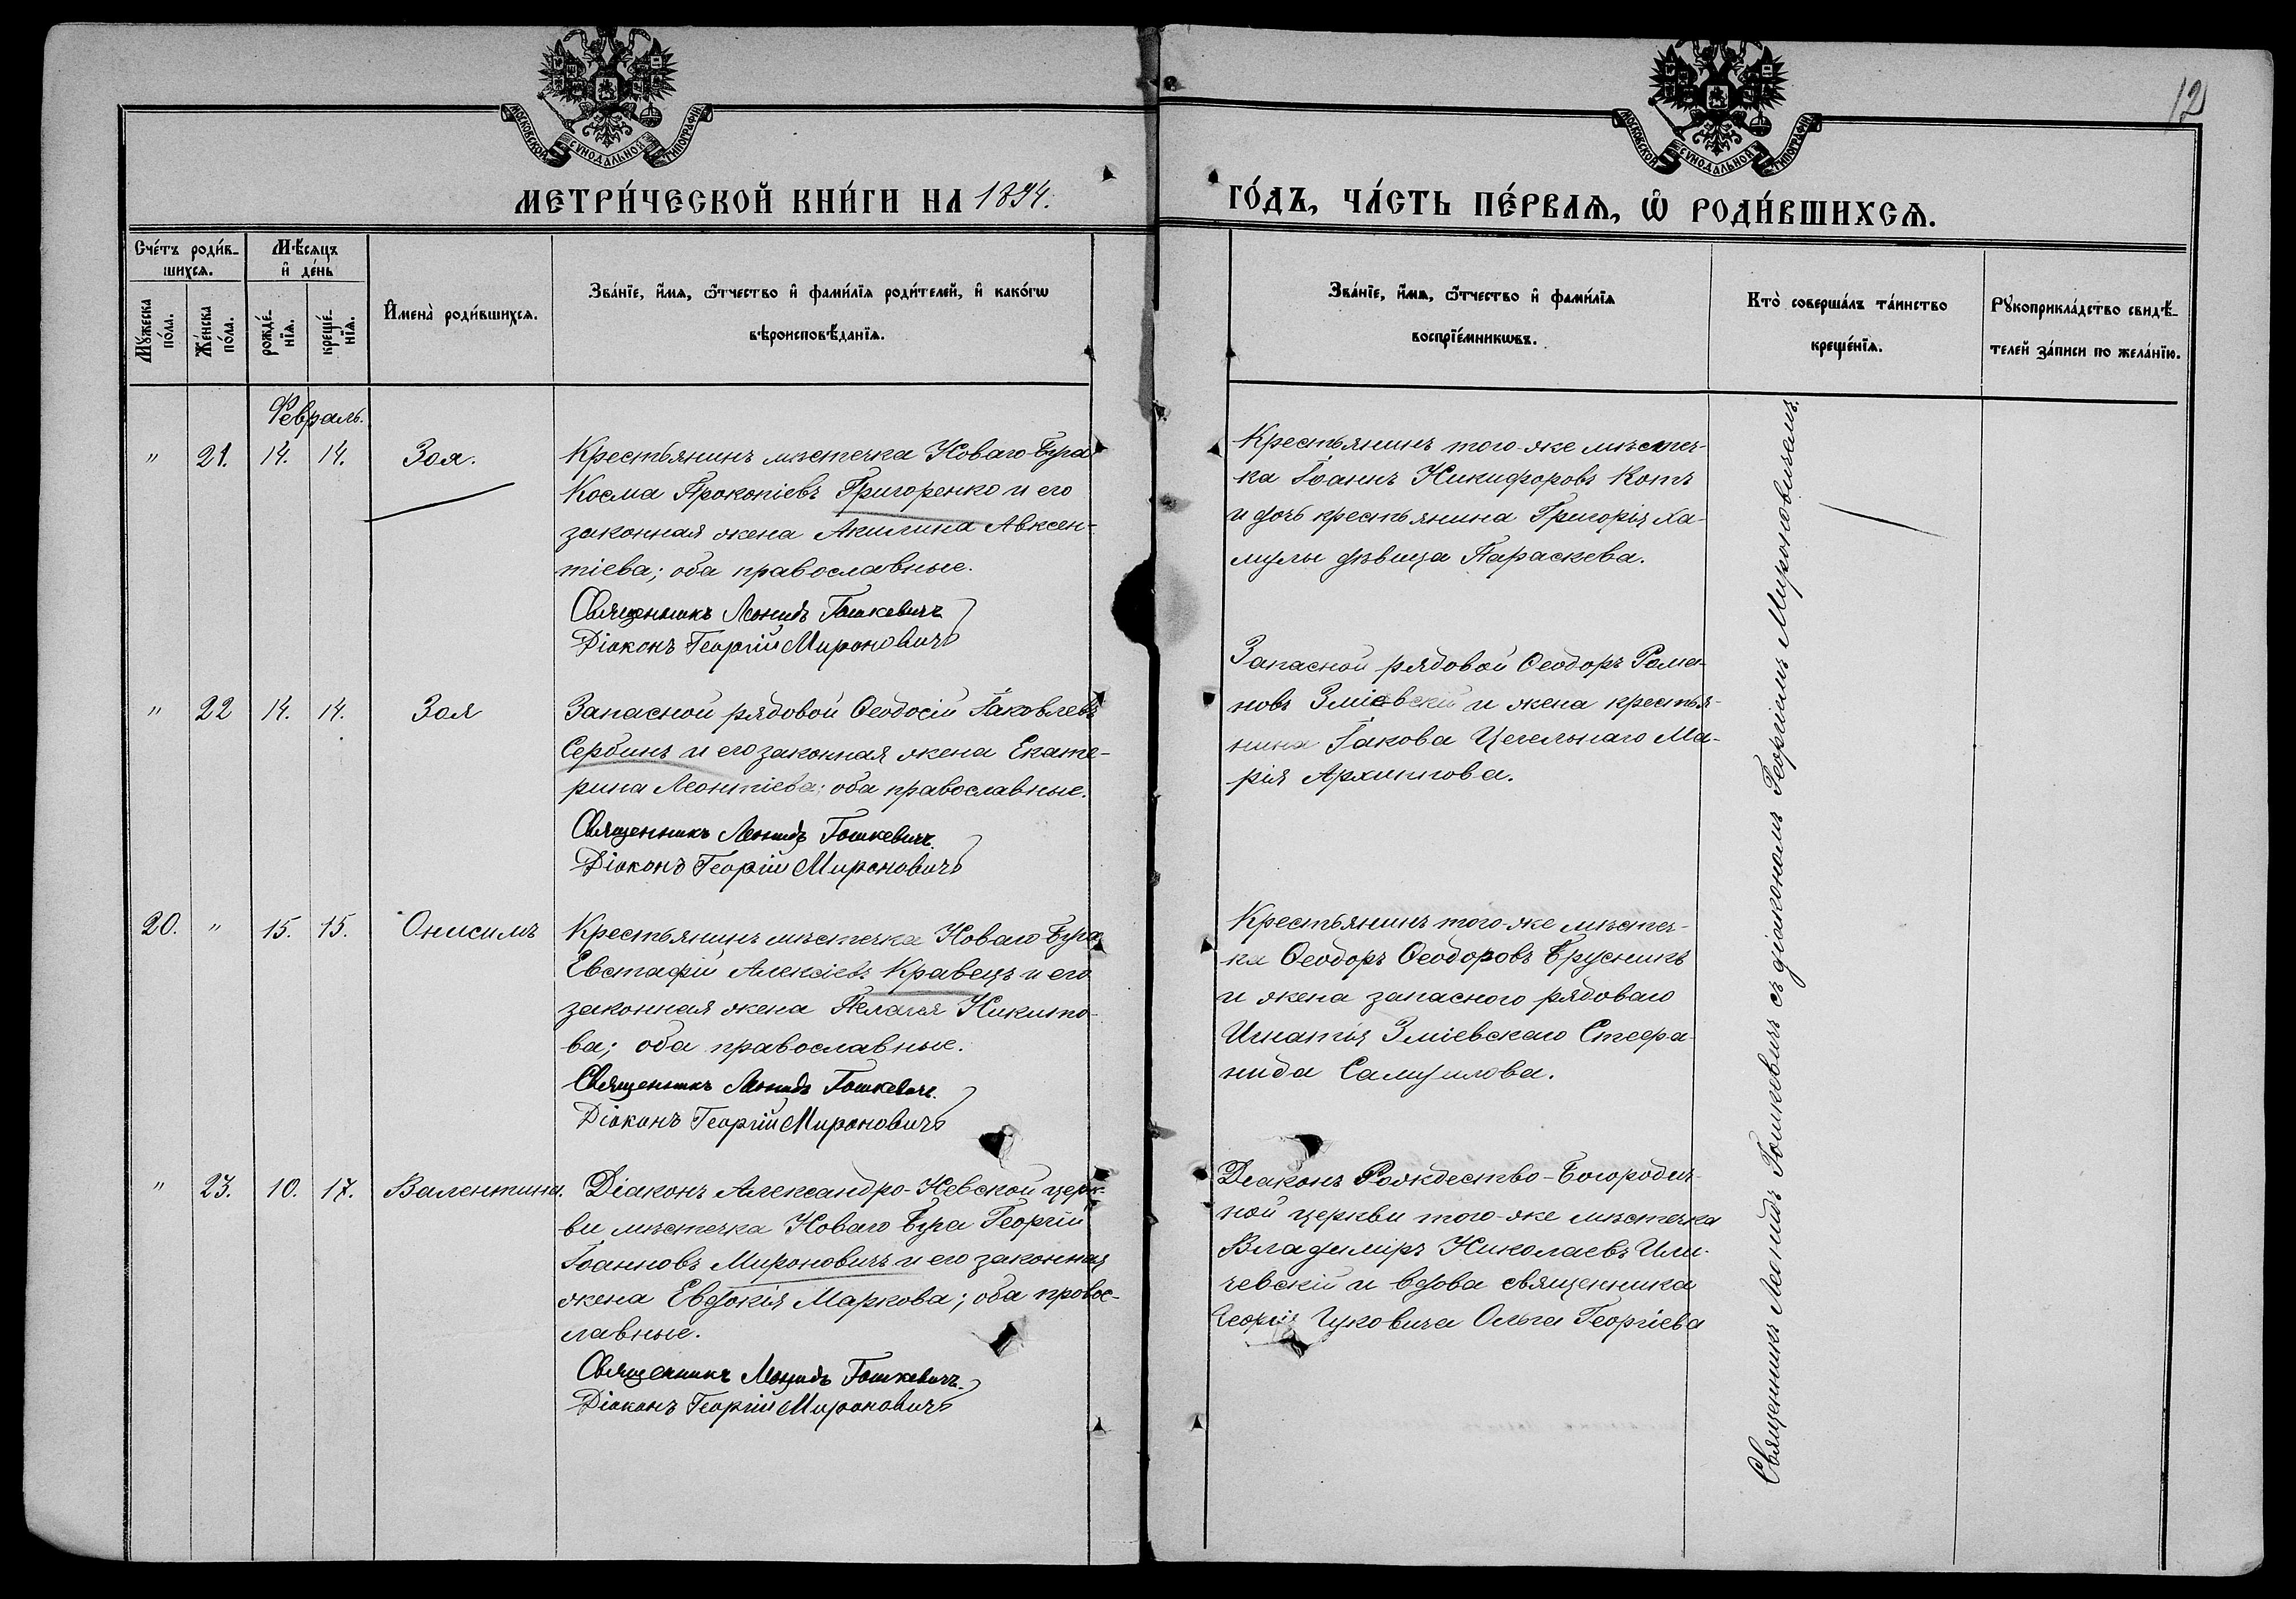 12
МОСКОВСКОЙ СѴНОДАЛЬНОЙ ТИПОГРАФІИ
МОСКОВСКОЙ СѴНОДАЛЬНОЙ ТИПОГРАФІИ
МЕТРИ́ЧЕСКОЙ КНИ́ГИ НА 1894.
ГО́ДЪ, ЧА́СТЬ ПЕ́РВАѦ, Ѡ҆ РОДИ́ВШИХСѦ.
Сче́тъ роди́в-
шихсѧ.
Мꙋ́жеска по́ла.
Же́нска по́ла.
Мѣ́сѧцъ
и҆ де́нь
рожде́-
нїѧ.
креще́-
нїѧ.
И҆мена̀ роди́вшихсѧ.
Зва́нїе, и҆́мѧ, ѻ҆́тчество и҆ фами́лїѧ роди́телей, и҆ како́гѡ
вѣроисповѣ́данїѧ.
Зва́нїе, и҆́мѧ, ѻ҆́тчество и҆ фами́лїѧ
воспрїе́мникѡвъ.
Кто̀ соверша́лъ та́инство
креще́нїѧ.
Рꙋкоприкла́дство свидѣ́-
телей за́писи по жела́нїю.
Февраль.
" 21. 14. 14. Зоя.
Крестьянинъ мѣстечка Новаго-Буга
Косма Прокопіевъ Григоренко и его
законная жена Акилина Авксен-
тіева; оба православные.
Священникъ Леонидъ Гошкевичъ
Діаконъ Георгій Мироновичъ
Крестьянинъ того-же мѣстеч-
ка Іоаннъ Никифоровъ Котъ
и дочь крестьянина Григорія Ха-
мулы дѣвица Параскева.
" 22 14. 14. Зоя
Запасной рядовой Ѳеодосій Іаковлевъ
Сербинъ и его законная жена Екате-
рина Леонтіева; оба православные.
Священникъ Леонидъ Гошкевичъ.
Діаконъ Георгій Мироновичъ
Запасной рядовой Ѳеодоръ Рома-
новъ Зміевскій и жена крестья-
нина Іакова Цегельнаго Ма-
рія Архиппова.
20. " 15. 15. Онисимъ
Крестьянинъ мѣстечка Новаго Буга
Евстафій Алексіевъ Кравецъ и его
законная жена Пелагія Никито-
ва; оба православные.
Священникъ Леонидъ Гошкевичъ.
Діаконъ Георгій Мироновичъ
Крестьянинъ того-же мѣстеч-
ка Ѳеодоръ Ѳеодоровъ Брусникъ
и жена запасного рядоваго
Игнатія Зміевскаго Стефа-
нида Самуилова.
" 23. 10. 17. Валентина.
Діаконъ Александро-Невской церк-
ви мѣстечка Новаго Буга Георгій
Іоанновъ Мироновичъ и его законная
жена Евдокія Маркова; оба правос-
лавные.
Священникъ Леонидъ Гошкевичъ.
Діаконъ Георгій Мироновичъ
Діаконъ Рождество-Богородич-
ной церкви того-же мѣстечка
Владиміръ Николаевъ
и вдова священника
Георгія Цуковича Ольга Георгіева
Священникъ Леонидъ Гошкевичъ съ діакономъ Георгіемъ Мироновичемъ.